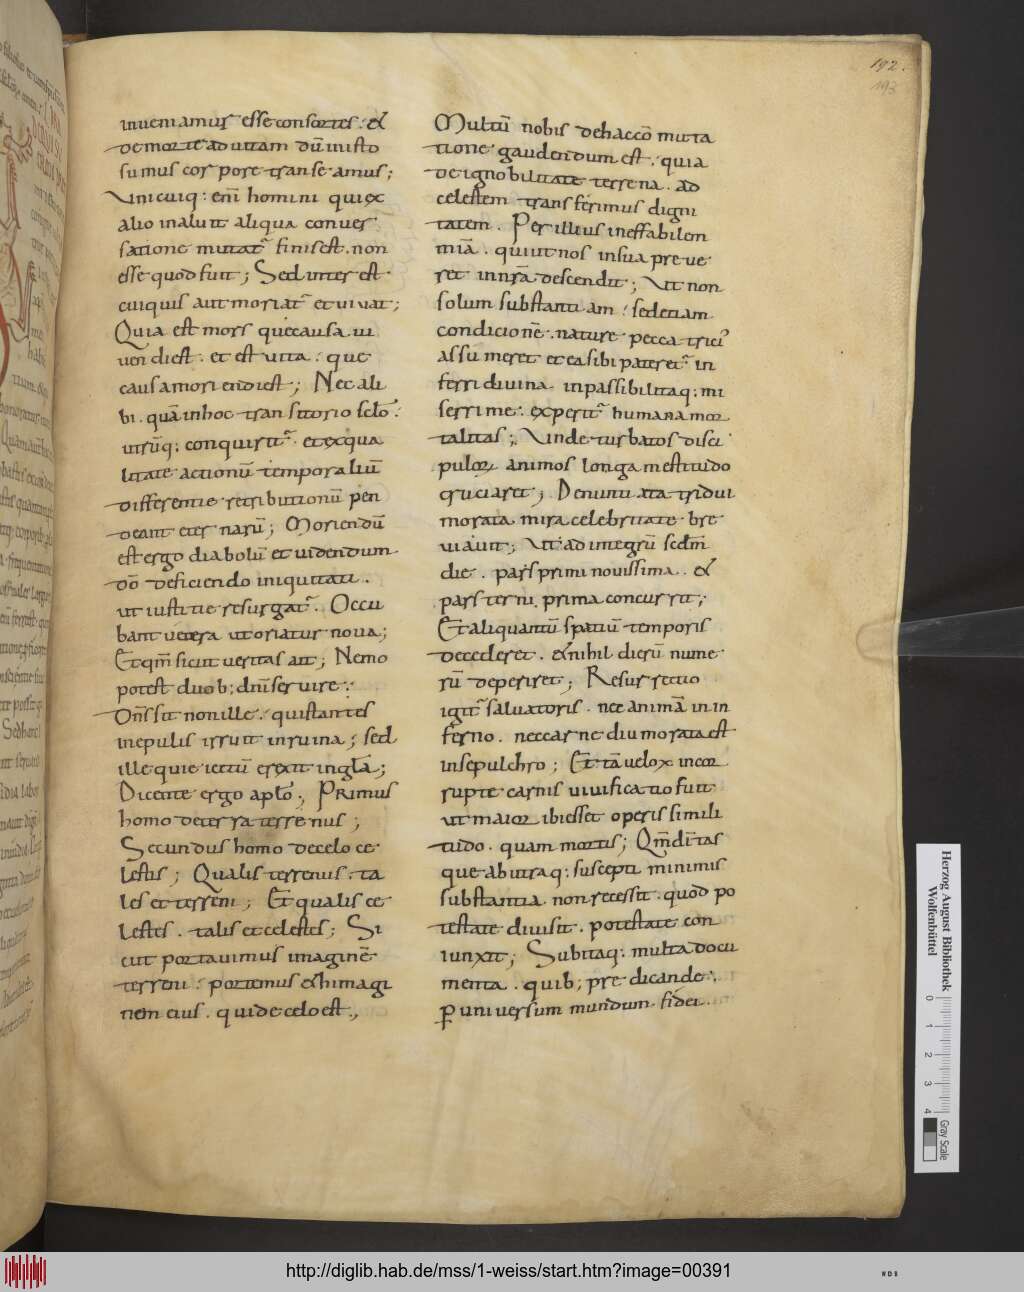 192.
193
inueniamur esse consortes. &
de morte ad uitam dũ in isto
sumus corpore transeamus;
Unicuiq: eni homini qui ex
alio in aluit aliqua conuer
satione mutat᷑ finis est. non
esse quod fuit; Sed interest
cuiquis aut moriat᷑ et uiuat;
Quia est mors que causa ui
uendi est. et est uita. que
causa moriendi est; Nec ali
bi. quã in hoc transitorio sclo.
utrũq: conquirit᷑. et ex qua
litate actionũ temporaliũ
differentie retributionũ pen
deant eternarũ; Moriendũ
est ergo diabolũ et uidendum
dõ deficiendo iniquitati.
ut iustitie resurgat᷑. Occu
bant uetera ut oriatur noua;
Et qm̃ sicut ueritas ait; Nemo
potest duob; dnis seruire.
Dns sit non ille. qui stantes
in epulis irruit in ruina; sed
ille qui eiectũ erexit in glam;
Dicente ergo aplo; Primus
homo de terra terrenus;
Secundus homo de celo ce
lestis; Qualis terrenus. ta
les et terreni; Et qualis ce
lestes. talis et celestes; Si
cut portauimus imaginẽ
terreni. portemus & himagi
nem eius. qui de celo est.,
Multũ nobis de hac cõmuta
tione gaudendum est. quia
de ignobilitate terrena. ad
celestem transferimus digni
tatem. Per illius ineffabilem
miã. qui ut nos in sua preue
ret in nrã descendit; Ut non
solum substantiam. sed etiam
condicionẽ. nature peccatrici
assumeret et ea sibi pateret᷑ in
ferri diuina inpassibilitaq: mi
serrime. experit᷑ humana mor
talitas; Unde turbatos disci
pulorum animos longa mestitudo
cruciaret; Denuntiata tridui
morata mira celebritate bre
uiauit; Ut ad integrũ sedm̃
die. pars primi nouissima. &
pars terni. prima concurrit;
Et aliquantũ spatiũ temporis
decederet. & nihil dierũ nume
rũ deperiret; Resurrectio
igit᷑ saluatoris. nec animã in in
ferno. nec carne diu morata est
in sepulchro; Et tã uelox incor
rupte carnis uiuificatio fuit
ut maior ibi esset operis simili
tudo. quam mortis; Qm̃ diitas
que ab utraq: suscepti minimis
substantia. non recessit. quod po
testate diuisit. potestate con
iunxit; Subitaq: multa docu
menta. quib; predicande.
p uniuersum mundum fidei.
Herzog August Bibliothek
Wolfenbüttel
0 1 2 3 4
Gray Scale
http://diglib.hab.de/mss/1-weiss/start.htm?image=00391